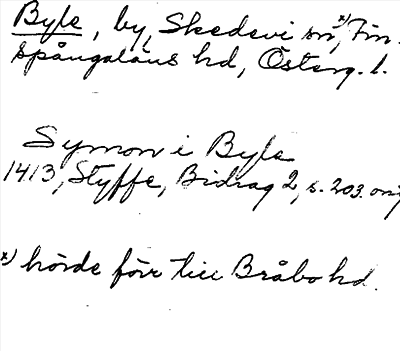 Byle, by, Skedevi sn, x) Fin-
spångaläns hd, Österg. l.
Symon i Byle
1413, Styffe, Bidrag 2, s. 203. orig
x) hörde förr till Bråbo hd.